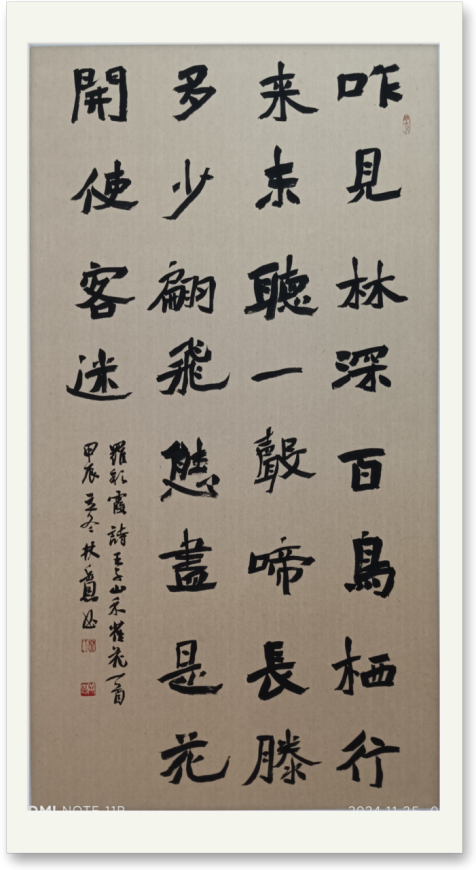 咋見林深百鳥栖行
来未聽一聲啼長滕
多少翩飛態盡是花
開使客迷
羅彩霞詩王子山禾雀花一首
甲辰孟冬林
DMI NOTE 11R
2024.11.25